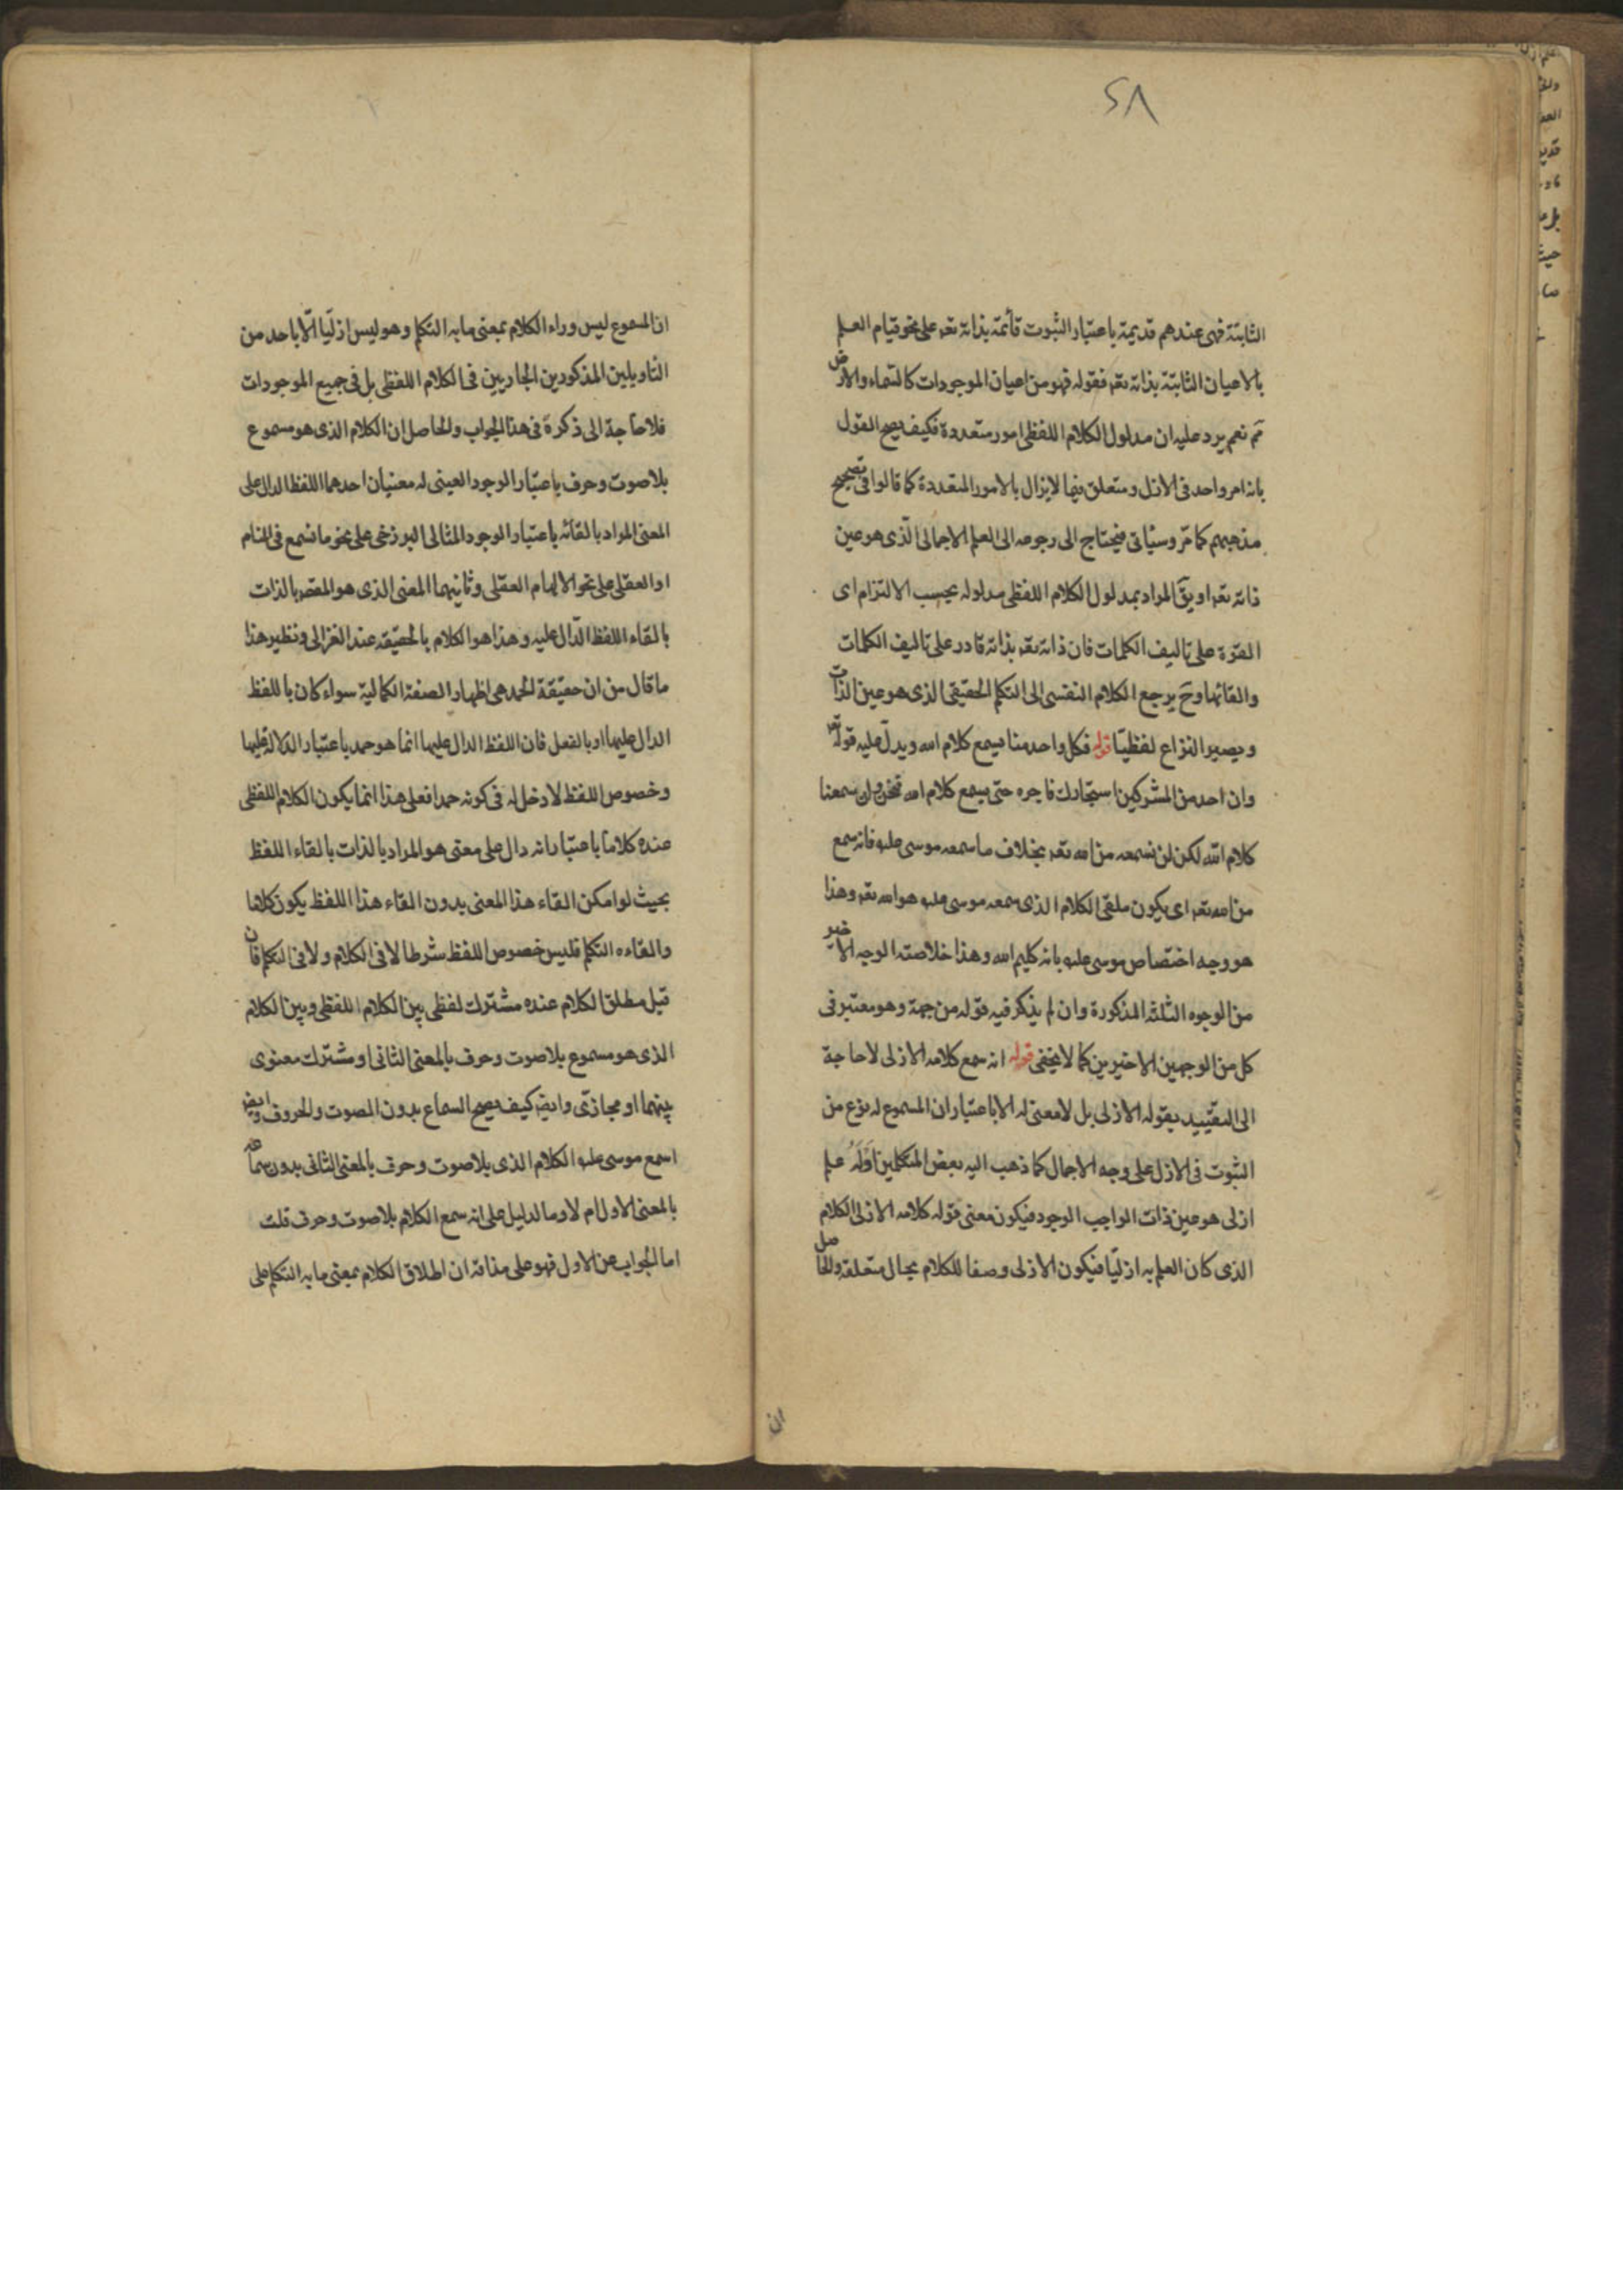 ٢٨
الثابتة فهى عندهم قديمة باعتبار الثبوت قائمة بذاته تعه على نحو قيام العلم
بالاعيان الثابتة بذاته تعه فقوله فهو من اعيان الموجودات كالسماء والارض
ثم نعم يرد عليه ان مدلول الكلام اللفظى امور متعددة فكيف يصح القول
بانه امر واحد فى الازل ومتعلق فيما لايزال بالامور المتعددة كما قالوا فى تصحيح
مذهبهم كما مرّ وسيأتى فيحتاج الى رجوعه الى العلم الاجمالى الّذى هو عين
ذاته تعه او يقّ المراد بمدلول الكلام اللفظى مدلوله بحسب الالتزام اى
القوّة على تاليف الكلمات فان ذاته تعه بذاته قادر على تاليف الكلمات
والقائها وحَ يرجع الكلام النفسى الى التكلم الحقيقى الذى هو عين الذات
ويصير النزاع لفظيّا قوله فكل واحد منا يسمع كلام الله ويدلّ عليه قوله تعه
وان احد من المشركين استجارك فاجره حتى يسمع كلام الله فنحن وان سمعنا
كلام الله لكن لن نسمعه من الله تعه بخلاف ما سمعه موسى عليه فانه سمع
من الله تعه اى يكون ملقى الكلام الذى سمعه موسى عليه هو الله تعه وهذا
هو وجه اختصاص موسى عليه بانه كليم الله وهذا خلاصته الوجه الاخير
من الوجوه الثلثة المذكورة وان لم يذكر فيه قوله من جهة وهو معتبر فى
كل من الوجهين الاخيرين كما لا يخفى قوله انه سمع كلامه الازلى لا حاجة
الى التقييد بقوله الازلى بل لا معنى له الا باعتبار ان المسموع له نوع من
الثبوت فى الازل على وجه الاجمال كما ذهب اليه بعض المتكلمين اوله علم
ازلى هو عين ذات الواجب الوجود فيكون معنى قوله كلامه الازلى الكلام
الذى كان العلم به ازليّا فيكون الازلى وصفا للكلام بحال متعلقه والحاصل
ان
ان المسموع ليس وراء الكلام بمعنى ما به التكلم وهو ليس ازليّا الّا باحد من
التأويلين المذكورين الجاريين فى الكلام اللفظى بل فى جميع الموجودات
فلا حاجة الى ذكره فى هذا الجواب والحاصل ان الكلام الذى هو مسموع
بلا صوت وحرف باعتبار الوجود العينى له معنيان احدهما اللفظ الدال على
المعنى المراد بالقائه باعتبار الوجود المثالى البرزخى على نحو ما نسمع فى المنام
او العقلى على نحو الالهام العقلى وثانيهما المعنى الذى هو المقصد بالذات
بالقاء اللفظ الدّال عليه وهذا هو الكلام بالحقيقه عند الغزالى ونظير هذا
ما قال من ان حقيقة الحمد هى اظهار الصفة الكمالية سواء كان باللفظ
الدال عليها او بالفعل فان اللفظ الدال عليها انما هو حمد باعتبار الدلالة عليها
وخصوص اللفظ لا دخل له فى كونه حمدا فعلى هذا انما يكون الكلام اللفظى
عنده كلاما باعتبار انه دال على معنى هو المراد بالذات بالقاء اللفظ
بحيث لو امكن القاء هذا المعنى بدون القاء هذا اللفظ يكون كلاما
والقاءه التكلم فليس خصوص اللفظ شرطا لا فى الكلام ولا فى التكلم فان
قيل مطلق الكلام عنده مشترك لفظى بين الكلام اللفظى وبين الكلام
الذى هو مسموع بلا صوت وحرف بالمعنى الثانى او مشترك معنوى
بينهما او مجازىّ وايضا كيف يصح السماع بدون الصوت والحروف وايضا
اسمع موسى عليه الكلام الذى بلا صوت وحرف بالمعنى الثانى بدون سماعه
بالمعنى الاول ام لا وما الدليل على انه سمع الكلام بلا صوت وحرف قلت
اما الجواب عن الاول فهو على مذاقه ان اطلاق الكلام بمعنى ما به التكلم على